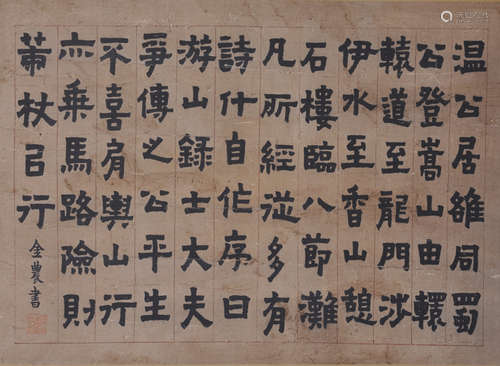 温公居雒同蜀
公登嵩山由轘
轅道至龍門涉
伊水至香山憩
石樓臨八節灘
凡所經從多有
詩什自作序曰
游山錄士大夫
爭傳之公平生
不喜肩輿山行
亦乘馬路險則
策杖㠯行
金農書